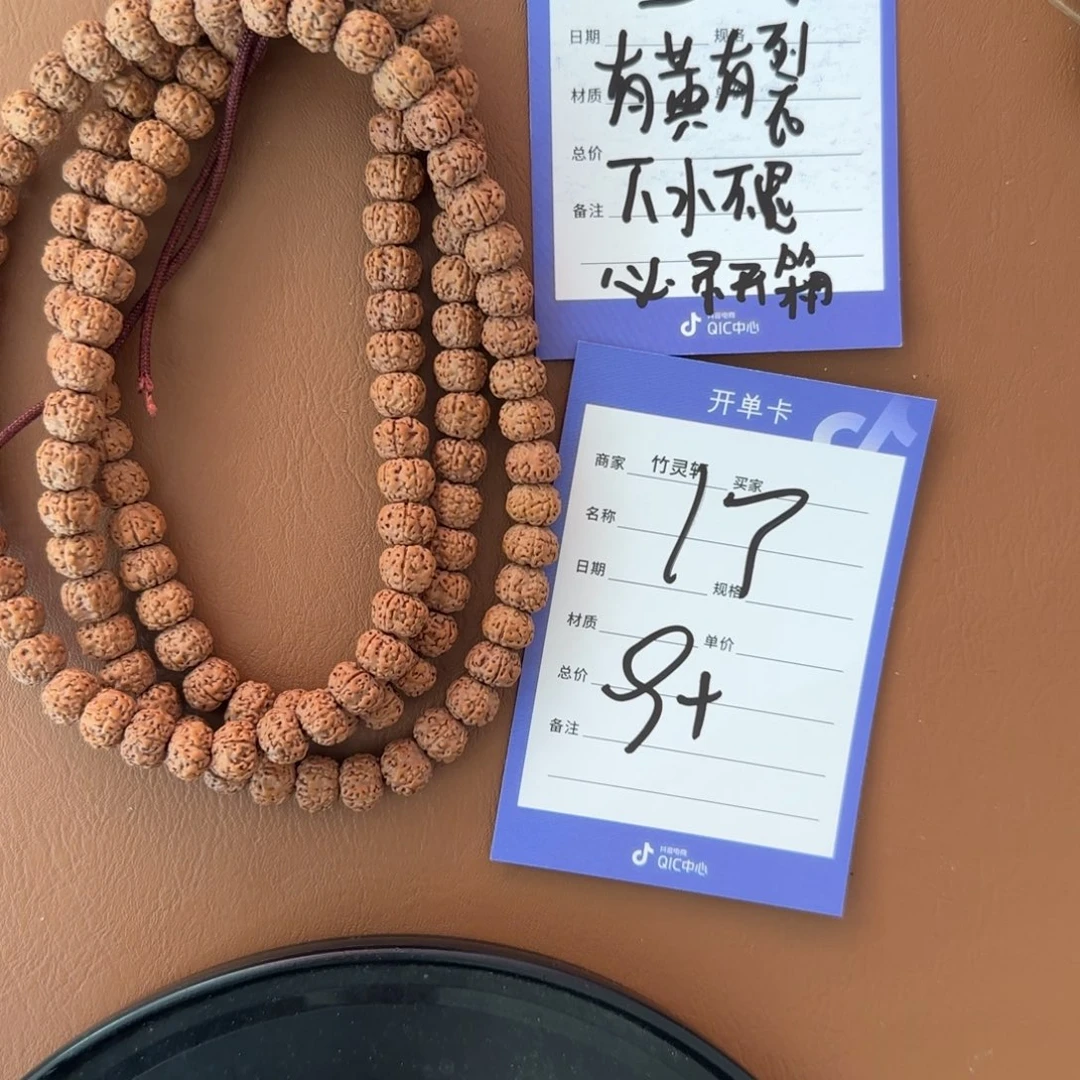 日期 规格
有黄有裂
材质
不
总价
下水不退
备注
必录开箱
抖音电商
QIC中心
开单卡
商家 竹灵轩 买家
17
名称
日期 规格
材质 单价
9+
总价
备注
抖音电商
QIC中心